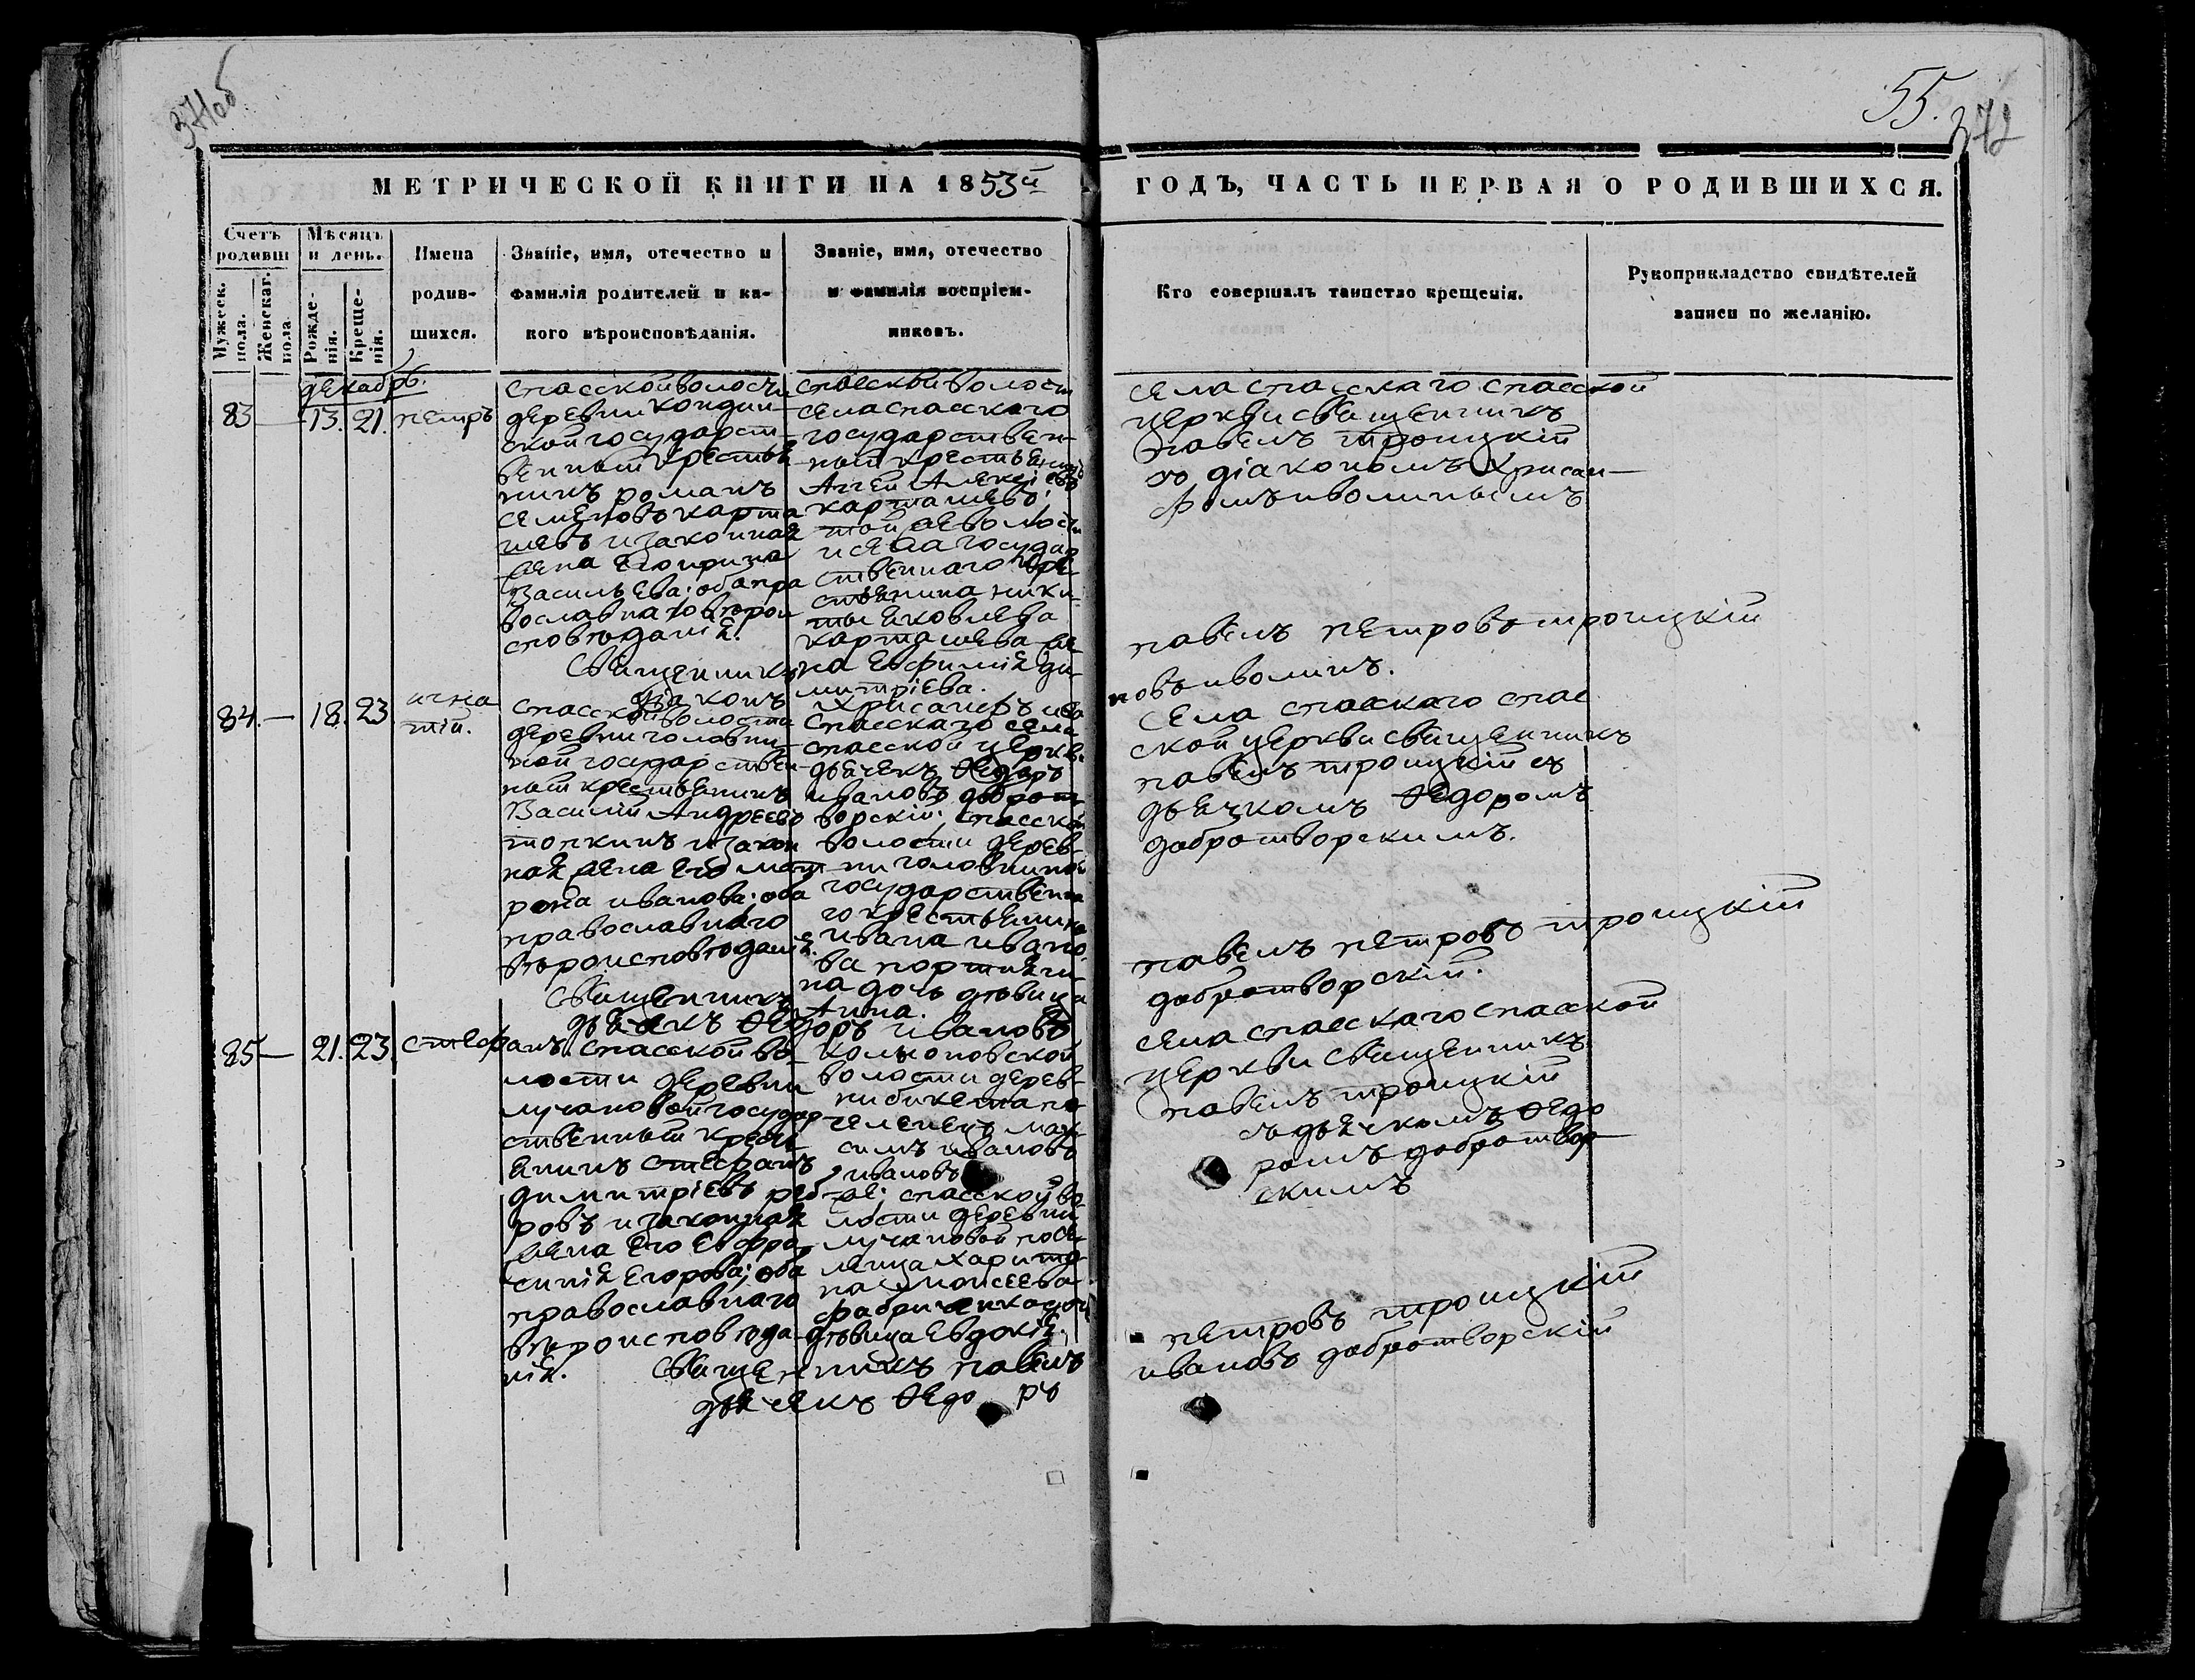 371об
55.
372
МЕТРИЧЕСКОЙ КНИГИ НА 1853й ГОДЪ, ЧАСТЬ ПЕРВАЯ О РОДИВШИХСЯ.
Счетъ родивш
Мужеск. пола.
Женскаг. пола
Мѣсяцъ и день.
Рожде-нія.
Креще-нія.
Имена
родив-
шихся.
Званіе, имя, отечество и
фамилія родителей и ка-
кого вѣроисповѣданія.
Званіе, имя, отечество
и фамилія воспріем-
никовъ.
Кто совершалъ таинство крещенія.
Рукоприкладство свидѣтелей
записи по желанію.
декабрь.
83 — 13. 21. петръ
спасской волости
деревни кондин-
ской государст-
венный крестья
нинъ романъ
семеновъ карта
шевъ и законная
жена его ирина
Васильева; оба пра
вославнаго вѣрои
сповѣданія.
спасской волости
села спасскаго
государствен-
ный крестьянинъ
Аггей Алексіевъ
карташевъ;
той же волости
и села государ
ственнаго кре
стьянина ники-
ты яковлева
карташева же
на евфимія ди-
митріева.
села спасскаго спасской
церкви священникъ
павелъ троицкій
со діакономъ Хрисан-
фомъ иволинымъ
Священникъ павелъ петровъ троицкій
діаконъ Хрисанфъ ива новъ иволинъ.
84. — 18. 23 игна
тій.
спасской волости
деревни головни-
ной государствен-
ный крестьянинъ
Василій Андреевъ
толкинъ и закон
ная жена его мат
рона иванова; оба
православнаго
вѣроисповѣданія.
спасскаго села
спасской церкви
дьячекъ Ѳедоръ
ивановъ доброт-
ворскій; спасской
волости дерев-
ни головниной
государственна
го крестьянина
ивана ивано
ва портняги-
на дочь дѣвица
Анна.
села спасскаго спас
ской церкви священникъ
павелъ троицкій съ
дьячкомъ Ѳедоромъ
добротворскимъ.
Священникъ павелъ петровъ троицкій
дьячекъ Ѳедоръ ивановъ добротворскій.
85 — 21. 23. стефанъ.
спасской во
лости деревни
лучановой государ
ственный кресть
янинъ стефанъ
димитріевъ
ровъ и законная
жена его евфро
синія егорова; оба
православнаго
вѣроисповѣда
нія.
волости дерев-
ни
мак
симъ ивановъ
ивановъ
спасской во
лости деревни
лучановой посе-
ленца харито
на моисеева
дочь
дѣвица евдокія.
села спасскаго спасской
церкви священникъ
павелъ троицкій
съ дьячкомъ Ѳедо
ромъ добротвор
скимъ
Священникъ павелъ петровъ троицкій
дьячекъ Ѳедоръ ивановъ добротворскій